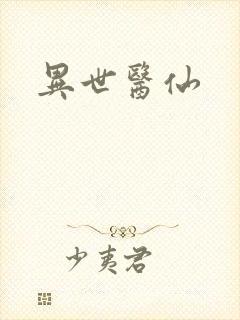 異世醫仙
少夷君